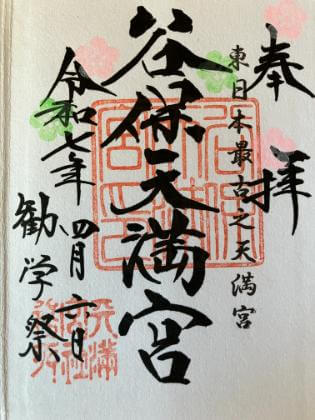 奉拝
東日本最古之天満宮
谷保天満宮
令和七年四月六日
勧学祭